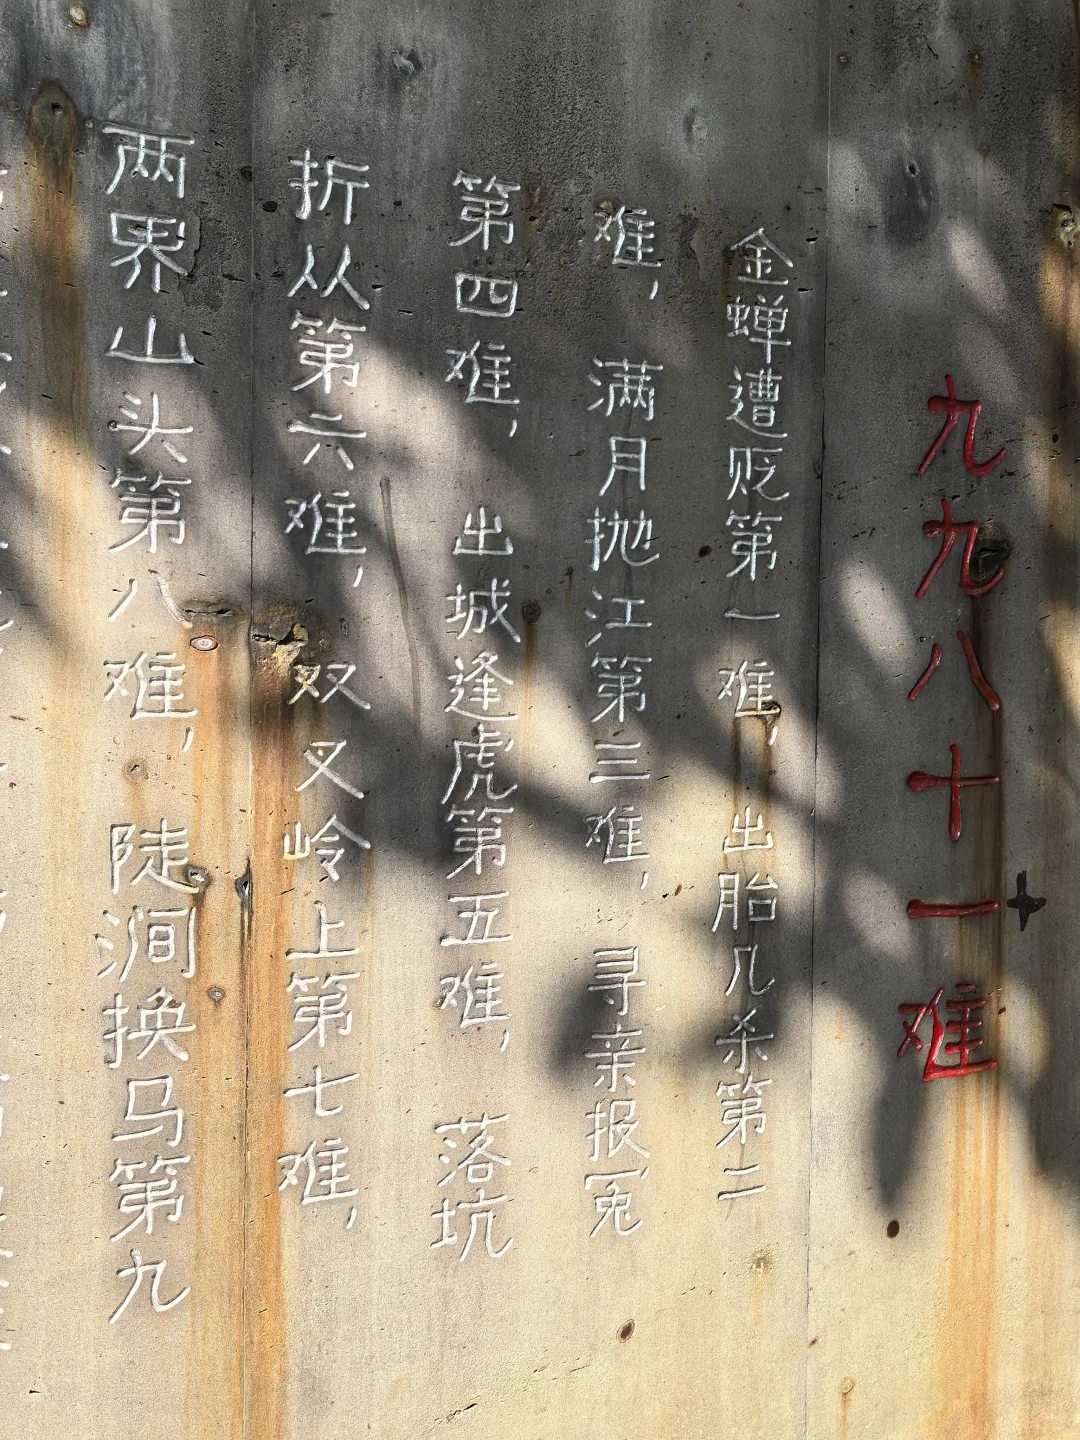 九九八十一难
金蝉遭贬第一难，出胎几杀第二
难，满月抛江第三难，寻亲报冤
第四难，出城逢虎第五难，落坑
折从第六难，双叉岭上第七难，
两界山头第八难，陡涧换马第九